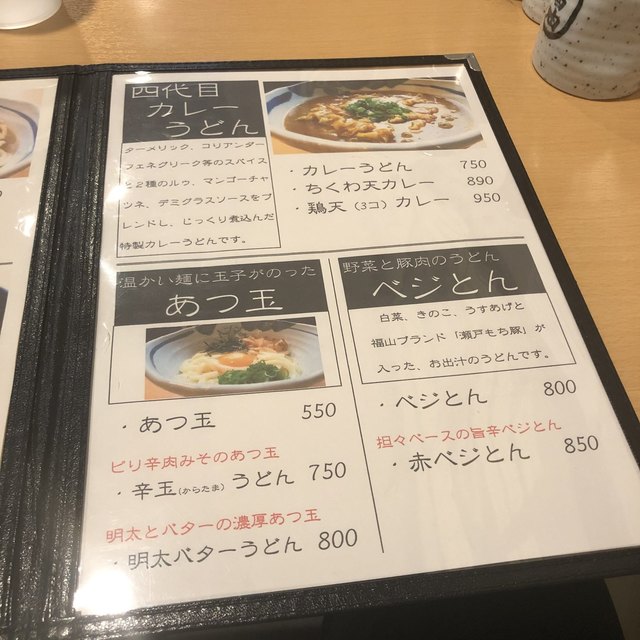 四代目
カレー
うどん
ターメリック、コリアンダー
フェネグリーク等のスパイス
と2種のルゥ、マンゴーチャ
ツネ、デミグラスソースをブ
レンドし、じっくり煮込んだ
特製カレーうどんです。
・カレーうどん 750
・ちくわ天カレー 890
・鶏天(3コ)カレー 950
温かい麺に玉子がのった
あつ玉
・あつ玉 550
ピリ辛肉みそのあつ玉
・辛玉(からたま)うどん 750
明太とバターの濃厚あつ玉
・明太バターうどん 800
野菜と豚肉のうどん
ベジとん
白菜、きのこ、うすあげと
福山ブランド「瀬戸もち豚」が
入った、お出汁のうどんです。
・ベジとん 800
担々ベースの旨辛ベジとん
・赤ベジとん 850